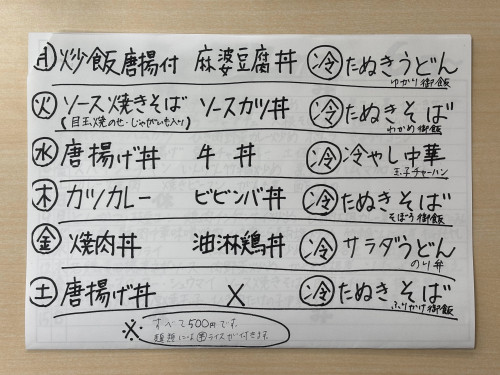 月 炒飯唐揚付 麻婆豆腐丼 冷 たぬきうどん
ゆかり御飯
火 ソース焼きそば ソースカツ丼 冷 たぬきそば
(目玉焼のせ・じゃがいも入り) わかめ御飯
水 唐揚げ丼 牛丼 冷 冷やし中華
玉子チャーハン
木 カツカレー ビビンバ丼 冷 たぬきそば
そぼろ御飯
金 焼肉丼 油淋鶏丼 冷 サラダうどん
のり弁
土 唐揚げ丼 × 冷 たぬきそば
ふりかけ御飯
※ すべて500円です。
麺類には Ⓡライスが付きます。